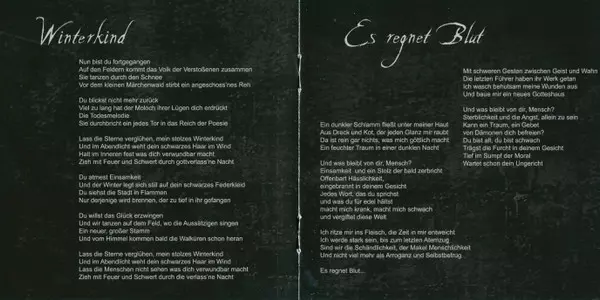 Winterkind
Nun bist du fortgegangen
Auf den Feldern kommt das Volk der Verstoßenen zusammen
Sie tanzen durch den Schnee
Vor dem kleinen Märchenwald stirbt ein angeschoss'nes Reh
Du blickst nicht mehr zurück
Viel zu lang hat der Moloch ihrer Lügen dich erdrückt
Die Todesmelodie
Sie durchbricht ein jedes Tor in das Reich der Poesie
Lass die Sterne verglühen, mein stolzes Winterkind
Und im Abendlicht weht dein schwarzes Haar im Wind
Halt im Inneren fest was dich verwundbar macht
Zieh mit Feuer und Schwert durch gottverlass'ne Nacht
Du atmest Einsamkeit
Und der Winter legt sich still auf dein schwarzes Federkleid
Du siehst die Stadt in Flammen
Nur derjenige wird brennen, der zu tief in ihr gefangen
Du willst das Glück erzwingen
Und wir tanzen auf dem Feld, wo die Aussätzigen singen
Ein neuer, großer Stamm
Und vom Himmel kommen bald die Walküren schon heran
Lass die Sterne verglühen, mein stolzes Winterkind
Und im Abendlicht weht dein schwarzes Haar im Wind
Lass die Menschen nicht sehen was dich verwundbar macht
Zieh mit Feuer und Schwert durch die verlass'ne Nacht
Es regnet Blut
Ein dunkler Schlamm fließt unter meiner Haut
Aus Dreck und Kot, der jeden Glanz mir raubt
Da ist rein gar nichts, was mich göttlich macht
Ein feuchter Traum in einer dunklen Nacht
Und was bleibt von dir, Mensch?
Einsamkeit und ein Stolz der bald zerbricht
Offenbart Hässlichkeit,
eingebrannt in deinem Gesicht
Jedes Wort, das du sprichst
und was du für ecke hältst
macht mich krank, macht mich schwach
und vergiftet diese Welt
Ich ritze mir ins Fleisch, die Zeit in mir entweicht
Ich werde stark sein, bis zum letzten Atemzug
Sind wir die Schändlichkeit, der Makel Menschlichkeit
Und nicht viel mehr als Arroganz und Selbstbetrug
Es regnet Blut...
Mit schweren Gesten zwischen Geist und Wahn
Die letzten Führer haben ihr Werk getan
Ich wasch behutsam meine Wunden aus
Und baue mir ein neues Gotteshaus
Und was bleibt von dir, Mensch?
Sterblichkeit und die Angst, allein zu sein
Kann ein Traum, ein Gebet
von Dämonen dich befreien?
Du bist alt, du bist schwach
Trägst die Furcht in deinem Gesicht
Tief im Sumpf der Moral
Wartet schon dein Ungericht